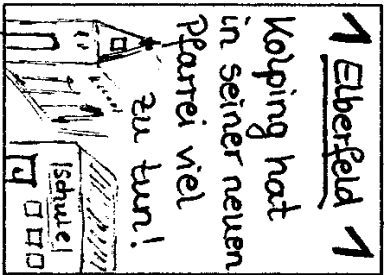 1 Elberfeld 1
Kolping hat
in seiner neuen
Pfarrei viel
zu tun!
Schule